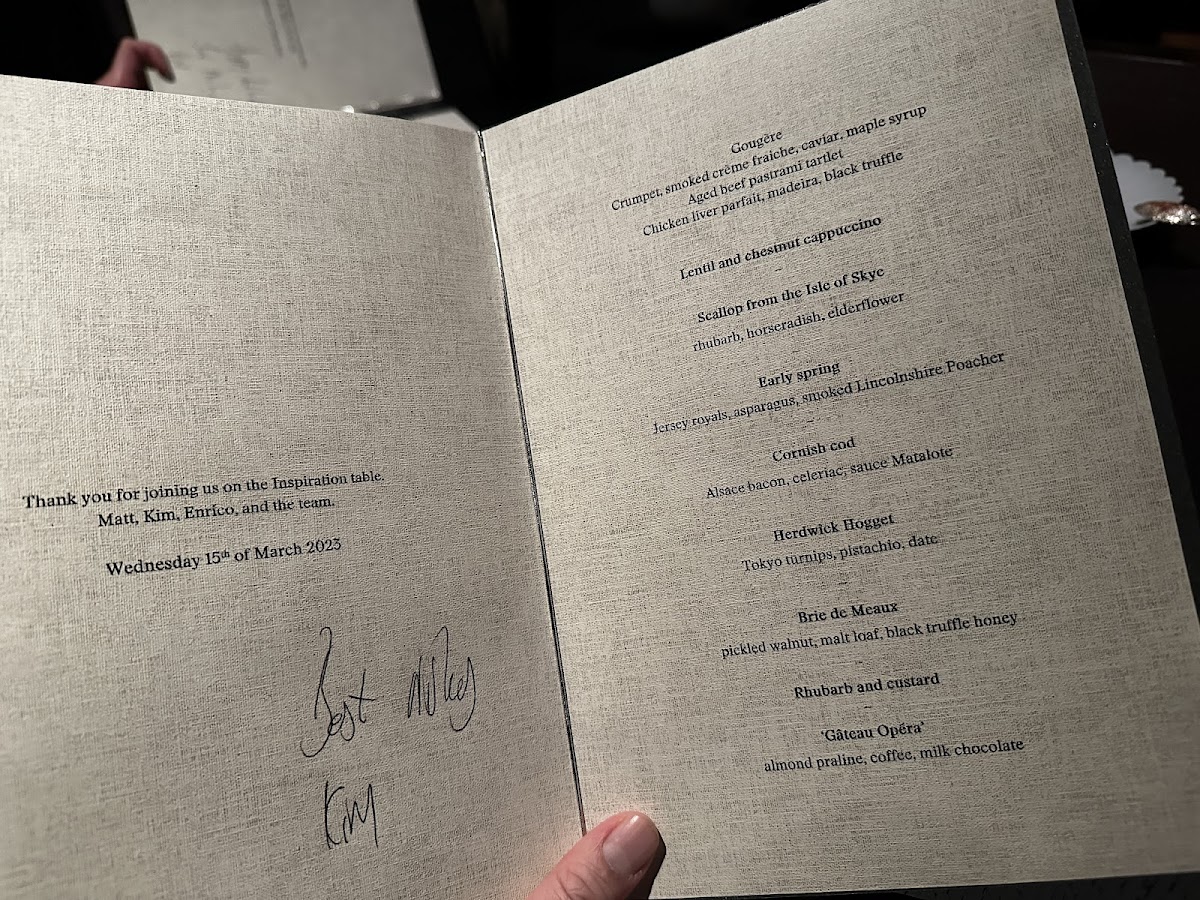 Thank you for joining us on the Inspiration table.
Matt, Kim, Enrico, and the team.
Wednesday 15th of March 2023
Best wishes
Kim
Gougère
Crumpet, smoked crème fraiche, caviar, maple syrup
Aged beef pastrami tartlet
Chicken liver parfait, madeira, black truffle
Lentil and chestnut cappuccino
~
Scallop from the Isle of Skye
rhubarb, horseradish, elderflower
~
Early spring
Jersey royals, asparagus, smoked Lincolnshire Poacher
~
Cornish cod
Alsace bacon, celeriac, sauce Matalote
~
Herdwick Hogget
Tokyo turnips, pistachio, date
~
Brie de Meaux
pickled walnut, malt loaf, black truffle honey
~
Rhubarb and custard
~
'Gâteau Opéra'
almond praline, coffee, milk chocolate